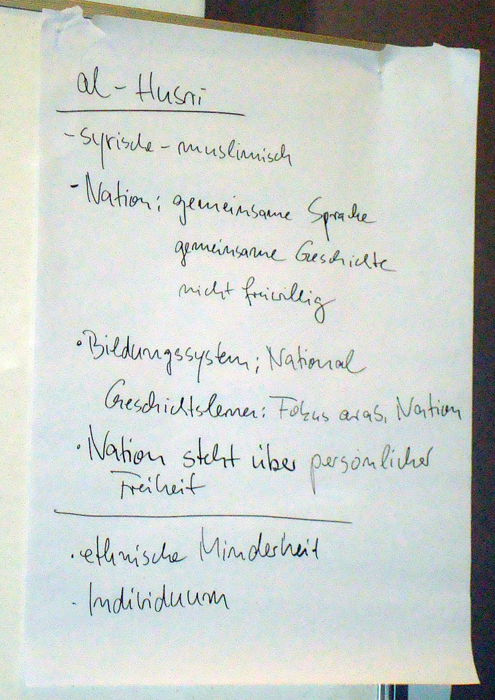 al-Husri
- syrische-muslimisch
- Nation: gemeinsame Sprache
gemeinsame Geschichte
nicht freiwillig
• Bildungssystem; National
Geschichtslerner: Fokus arab. Nation
• Nation steht über persönlicher
Freiheit
• ethnische Minderheit
- Individuum